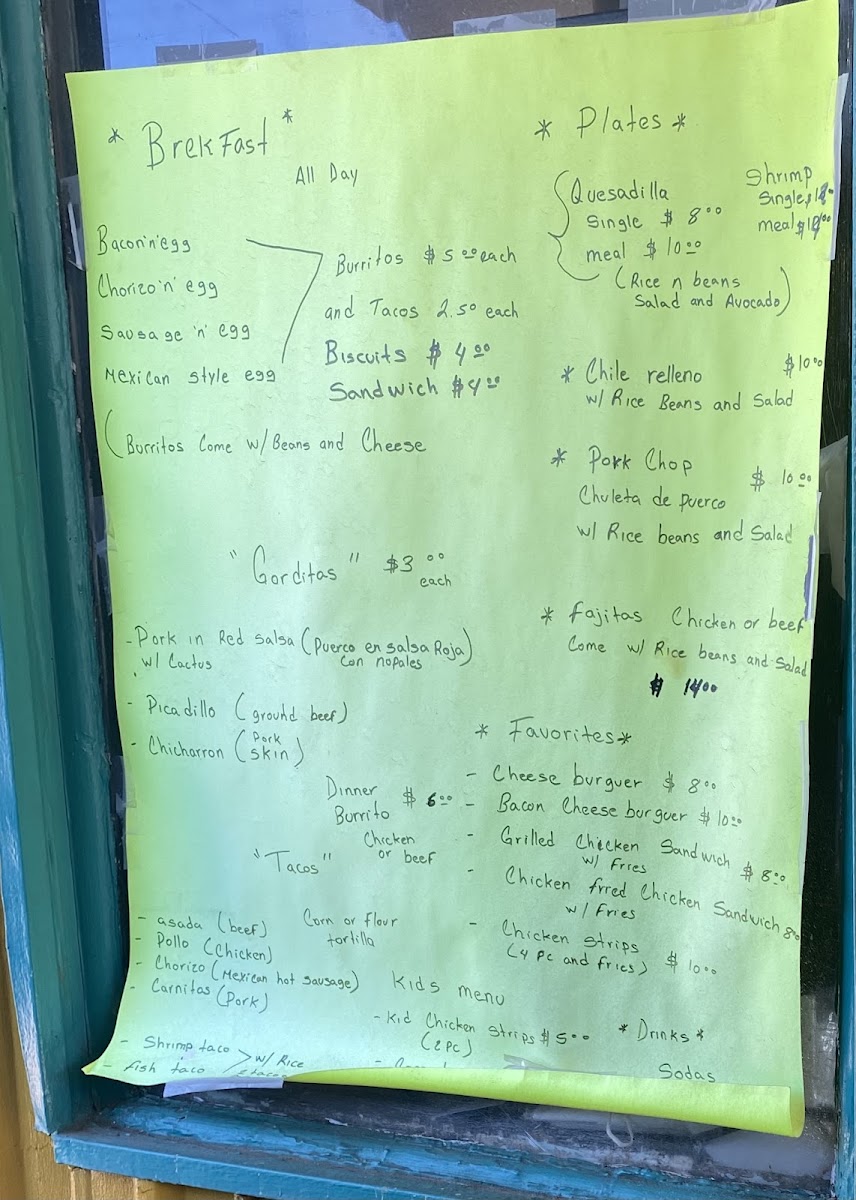 * Brekfast *
All Day
Bacon'n'egg
Chorizo'n' egg
Sausage 'n' egg
Mexican style egg
Burritos $5.00 each
and Tacos 2.50 each
Biscuits $4.00
Sandwich $4.00
(Burritos Come w/Beans and Cheese
"Gorditas" $3.00
each
- Pork in Red Salsa (Puerco en Salsa Roja)
w/ Cactus con nopales
- Picadillo (ground beef)
- Chicharron (Pork
skin)
Dinner
Burrito $6.00
Chicken
or beef
"Tacos"
- asada (beef)
- Pollo (Chicken)
- Chorizo (Mexican hot sausage)
- Carnitas (Pork)
Corn or flour
tortilla
- Shrimp taco
- fish taco
w/ Rice
* Plates *
Quesadilla
Single $8.00
meal $10.00
(Rice n beans
Salad and Avocado)
Shrimp
Single
meal
* Chile relleno $10.00
w/ Rice Beans and Salad
* Pork Chop $10.00
Chuleta de puerco
w/ Rice beans and Salad
* fajitas Chicken or beef
Come w/ Rice beans and Salad
$14.00
* Favorites *
- Cheese burguer $8.00
- Bacon Cheese burguer $10.00
- Grilled Chicken Sandwich $8.00
w/ Fries
- Chicken frred Chicken Sandwich 8.00
w/ Fries
- Chicken Strips
(4 Pc and fries) $10.00
Kids menu
- Kid Chicken Strips $5.00
(2 PC)
* Drinks *
Sodas